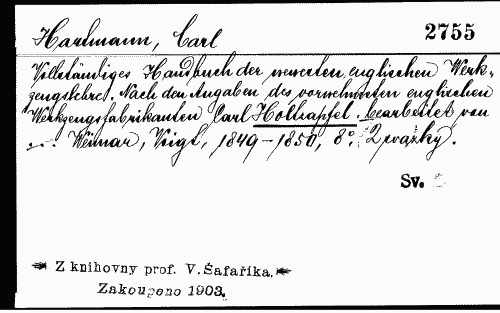 Hartmann, Carl
2755
Vollständiges Handbuch der neuesten englischen Werk-
zengslehre. Nach den Angaben des vornehmsten englischen
Werkzengsfabrikanten Carl Holtzapfel, bearbeitet von
... Weimar, Voigt, 1849-1850, 8°. 2 svazky.
Sv. 2
Z knihovny prof. V. Šafaříka.
Zakoupeno 1903.